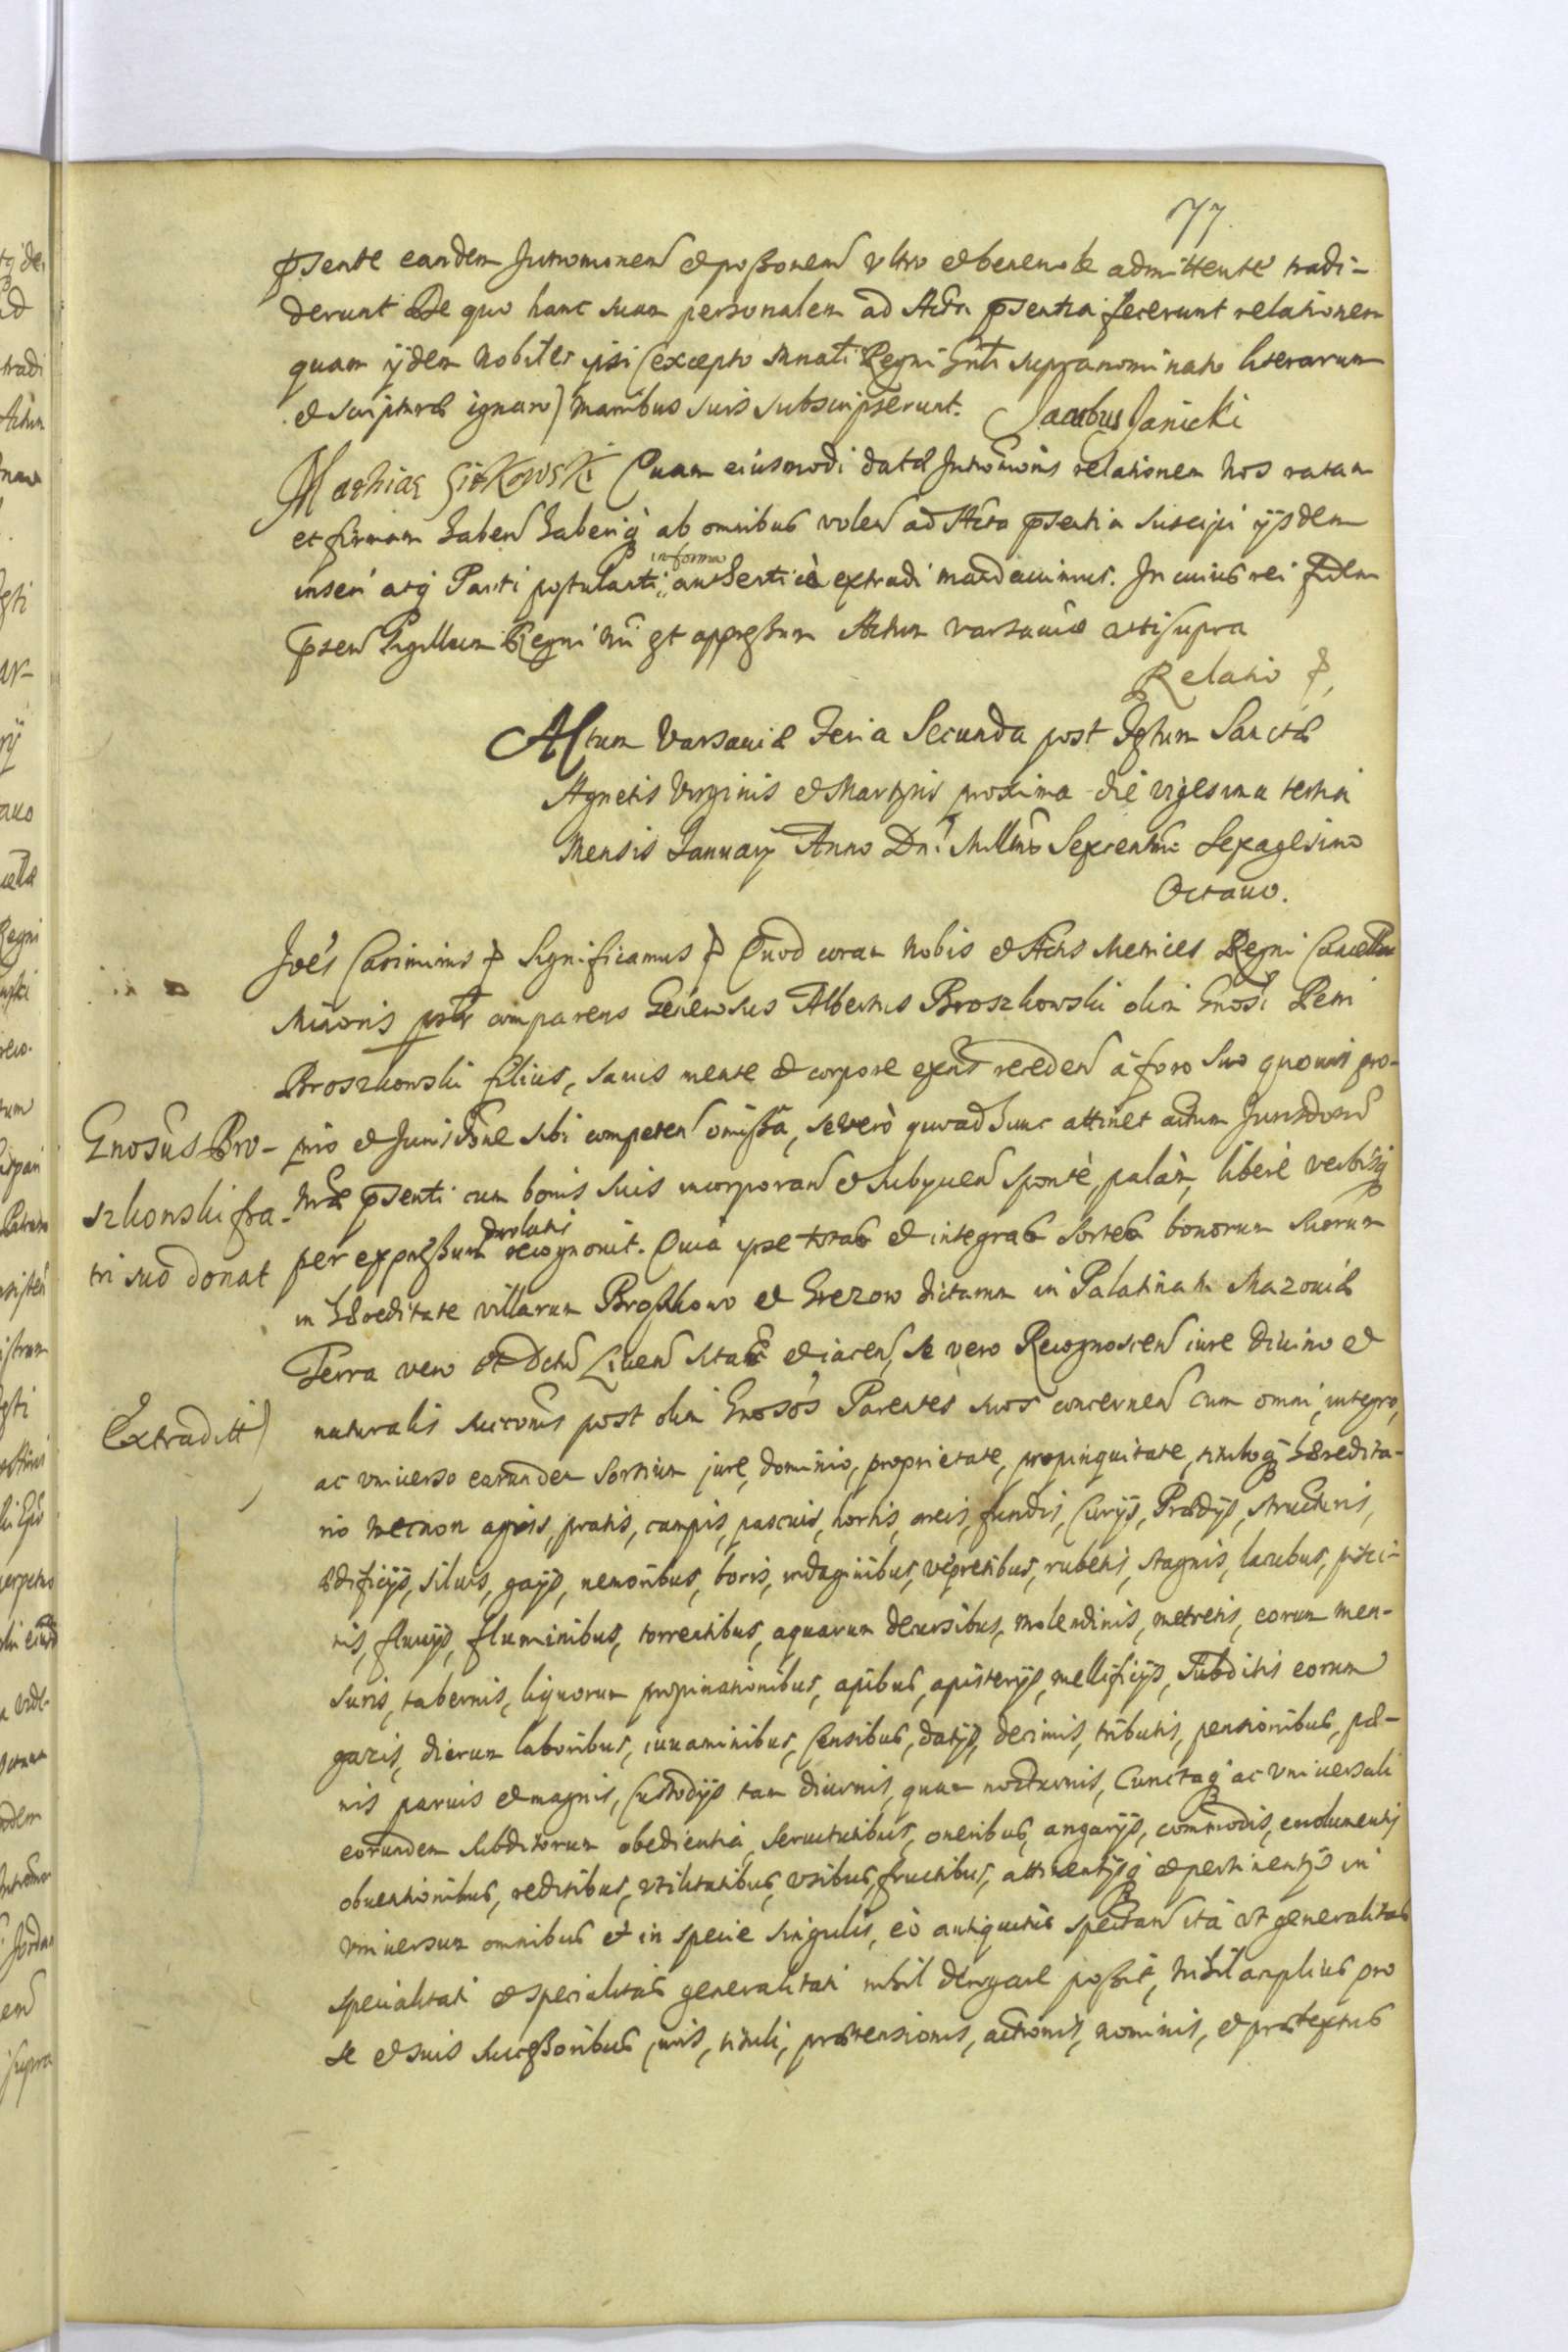 77
pnte eandem Intromonen et possonem vltro et beneuole admittente tradi-
derunt De quo hanc suam personalem ad Acta pntia fecerunt relationem
quam ijdem Nobiles ipsi (excepto Mnli Regni Gnli supranominato literarum
et scripturæ ignaro) manibus suis subscripserunt. Jacobus Janicki
Mathias Quam eiusmodi datæ Intromonis relationem Nos ratam
et firmam haben haberiq ab omnibus volen ad Acta pntia suscipi ijsdem
inseri atq Parti postulanti in forma authentica extradi mandauimus. In cuius rei fidem
pnten Sigillum Regni Nri est appressum Actum Varsauiæ vti supra
Relatio
Actum Varsauiæ Feria Secunda post Festum Sanctæ
Agnetis Virginis et Martyris proxima die vigesima tertia
Mensis Januarij Anno Dni Millmo Sexcentmo Sexagesimo
Octauo.
Joës Casimirus Significamus Quod coram Nobis et Actis Metrices Regni Cancellæ
Minoris psltr comparens Generosus Albertus Broszkowski olim Gnosi Petri
Broszkowski filius, sanus mente et corpore exns receden à foro suo quouis pro-
Gnosus Bro-
szkowski fra-
tri suo donat
prio et Jurisdone sibi competen omissa, se verò quoad hunc attinet actum Jurisdoni
Nræ pnti cum bonis suis incorporan et subijcien sponte, palàm, liberè verbisq
per expressum prolatis recognouit. Quia ipse totas et integras sortes bonorum suorum
in hæreditate villarum Broszkow et Grezow dictarum in Palatinatu Mazouiæ
Terra vero et Dctu Liuen sitas et iacen, se vero Recognoscen iure diuino et
Extraditt
naturalis succonis post olim Gnosos Parentes suos concernen cum omni, integro,
ac vniuerso earundem sortium jure, dominio, proprietate, propinquitate, tituloq hæredita-
rio necnon agris, pratis, campis, pascuis, hortis, areis, fundis, Curijs, Prædijs, structuris,
ædificijs, siluis, gajs, nemoribus, boris, indaginibus, vepretibus, rubetis, stagnis, lacubus, pisci-
nis, fluuijs, fluminibus, torrentibus, aquarum decursibus, molendinis, metretis, eorum men-
suris, tabernis, liquorum propinationibus, apibus, apisterijs, mellificijs, Subditis eorum
gazis, dierum laboribus, iuuaminibus, Censibus, datijs, decimis, tributis, pensionibus, pæ-
nis paruis et magnis, Custodijs tam diurnis, quam nocturnis, Cunctaq ac vniuersali
eorundem subditorum obedientia, seruitutibus, oneribus, angarijs, commodis, emolumentis
obuentionibus, reditibus, vtilitatibus, vsibus, fructibus, attinentijsq et pertinentijs in
vniuersum omnibus et in specie singulis, eò antiquitùs spectan ità vt generalitas
specialitati et specialitas generalitati nihil derogare possit, nihil amplius pro
se et suis successoribus juris, tituli, prætensionis, actionis, nominis, et prætextus